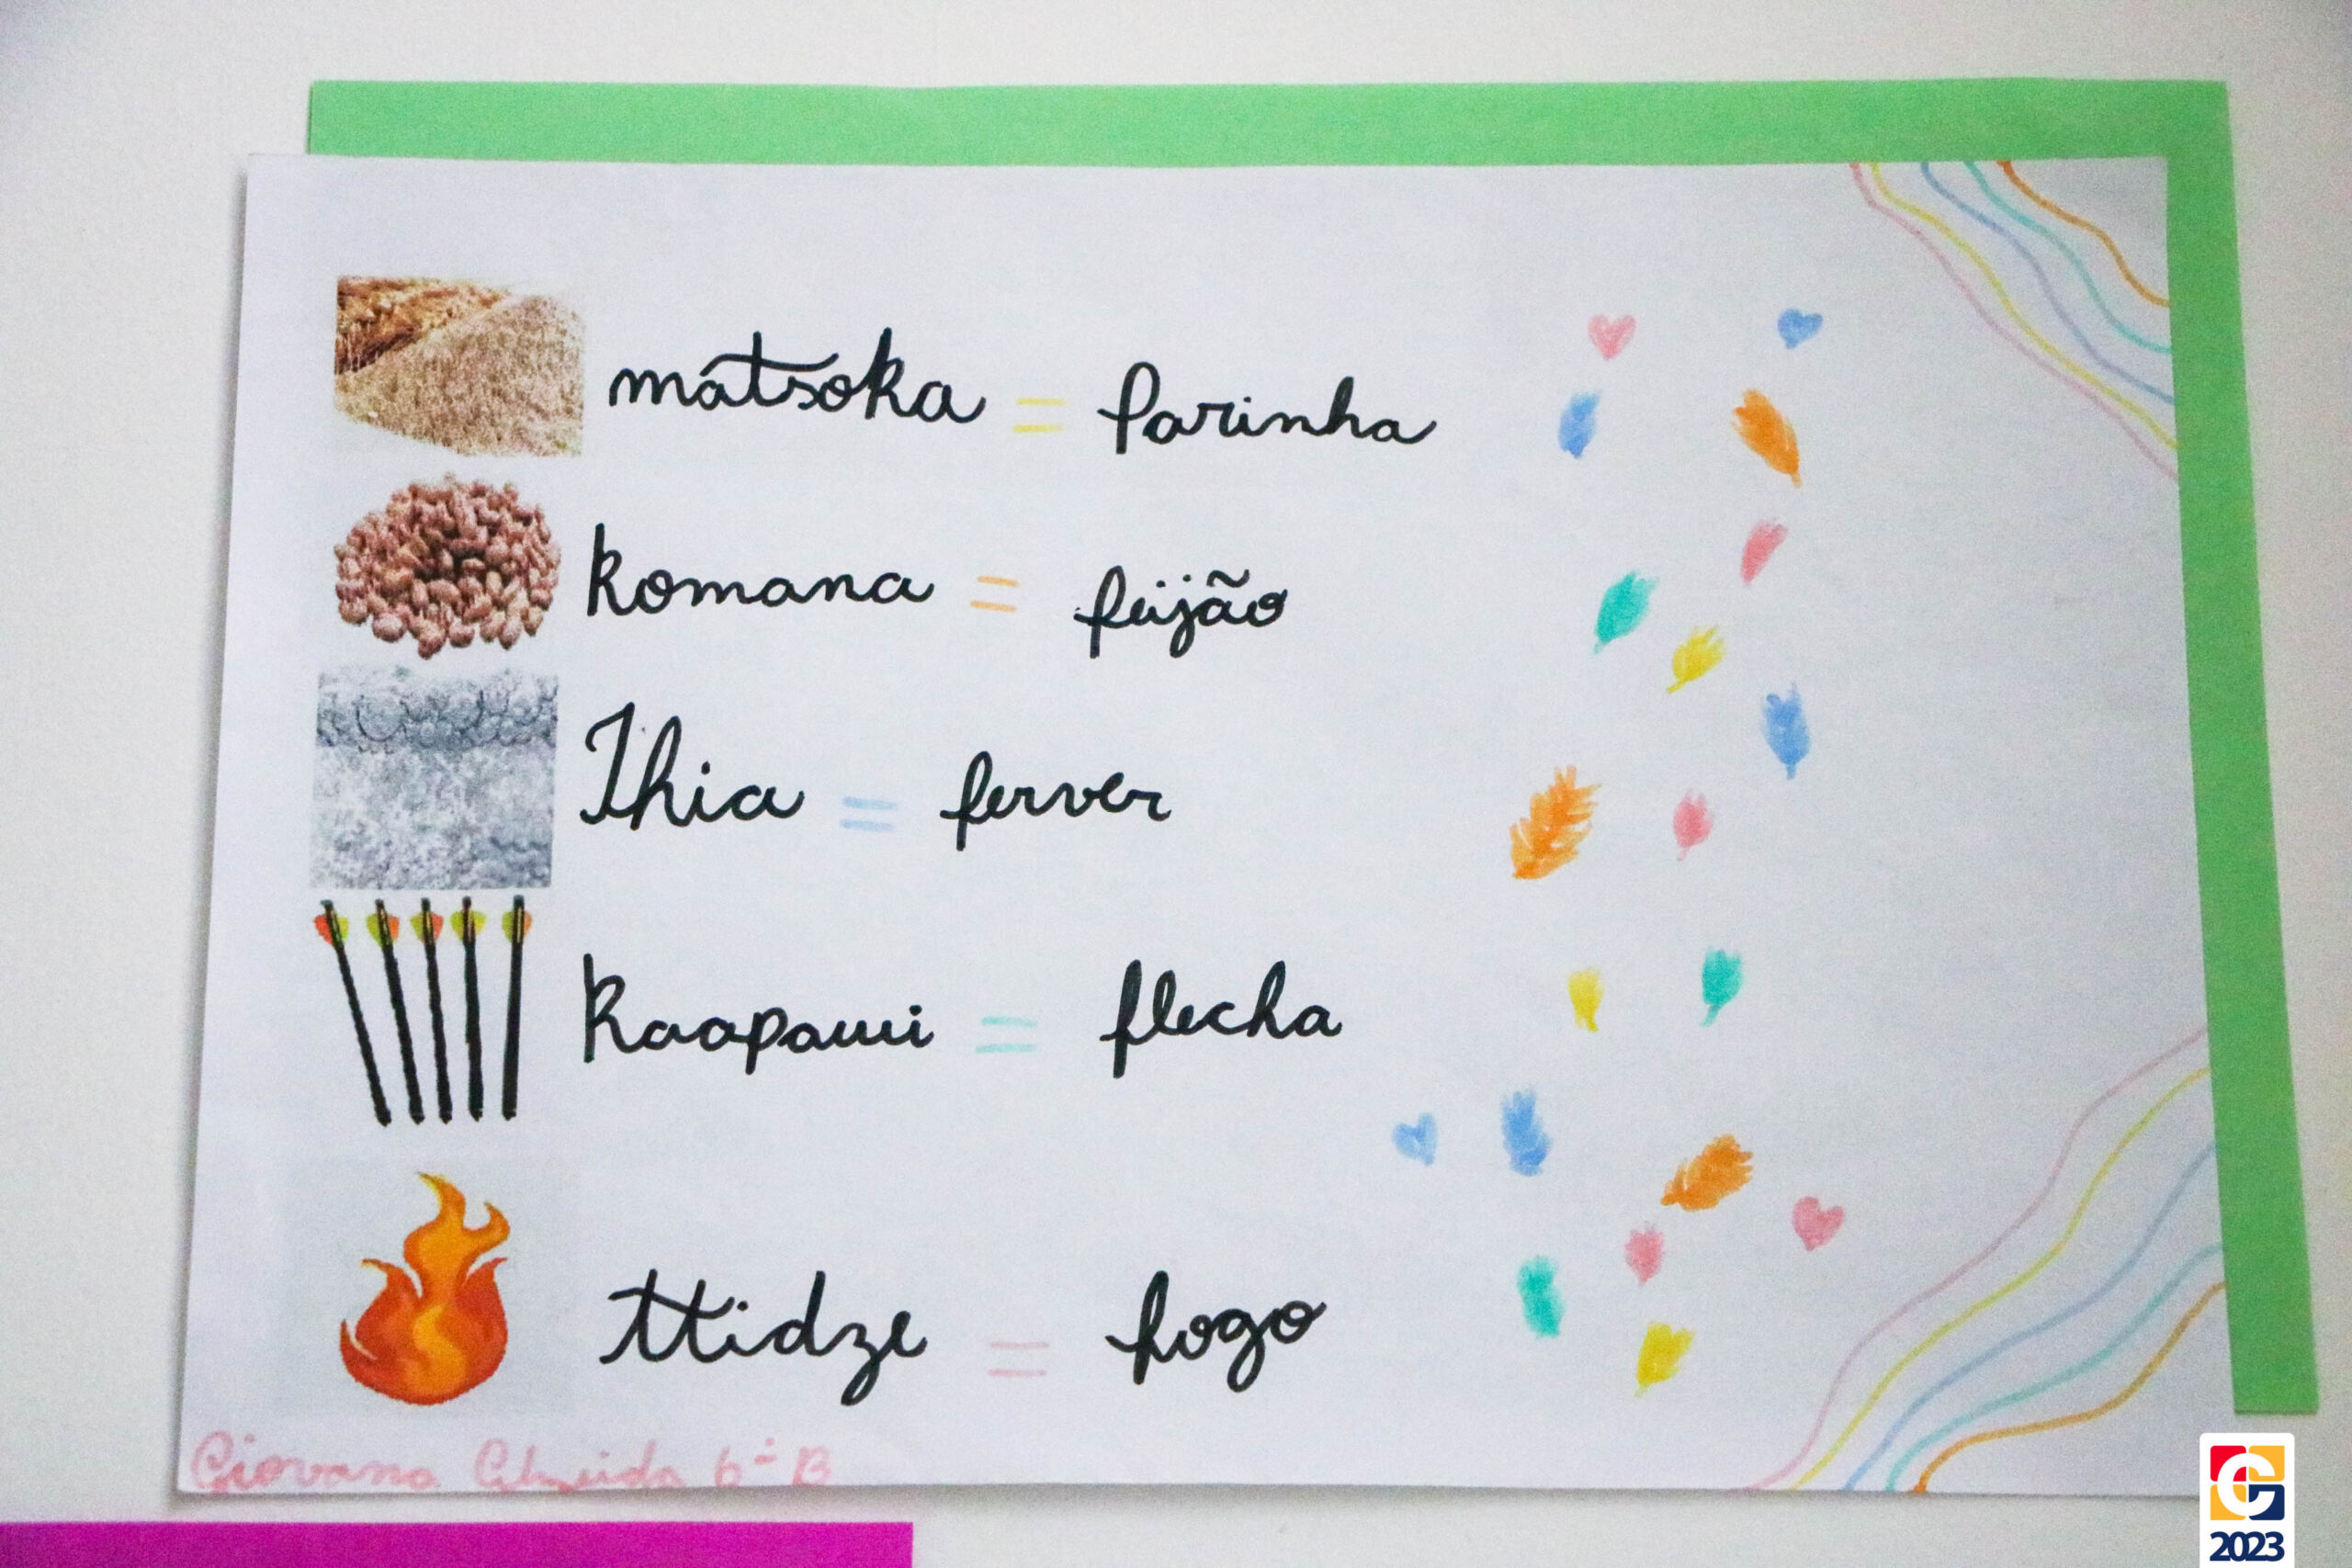 mátsoka = farinha
komana = feijão
Ihia = ferver
kaapawi = flecha
ttidze = fogo
Giovana Almeida 6º B
2023